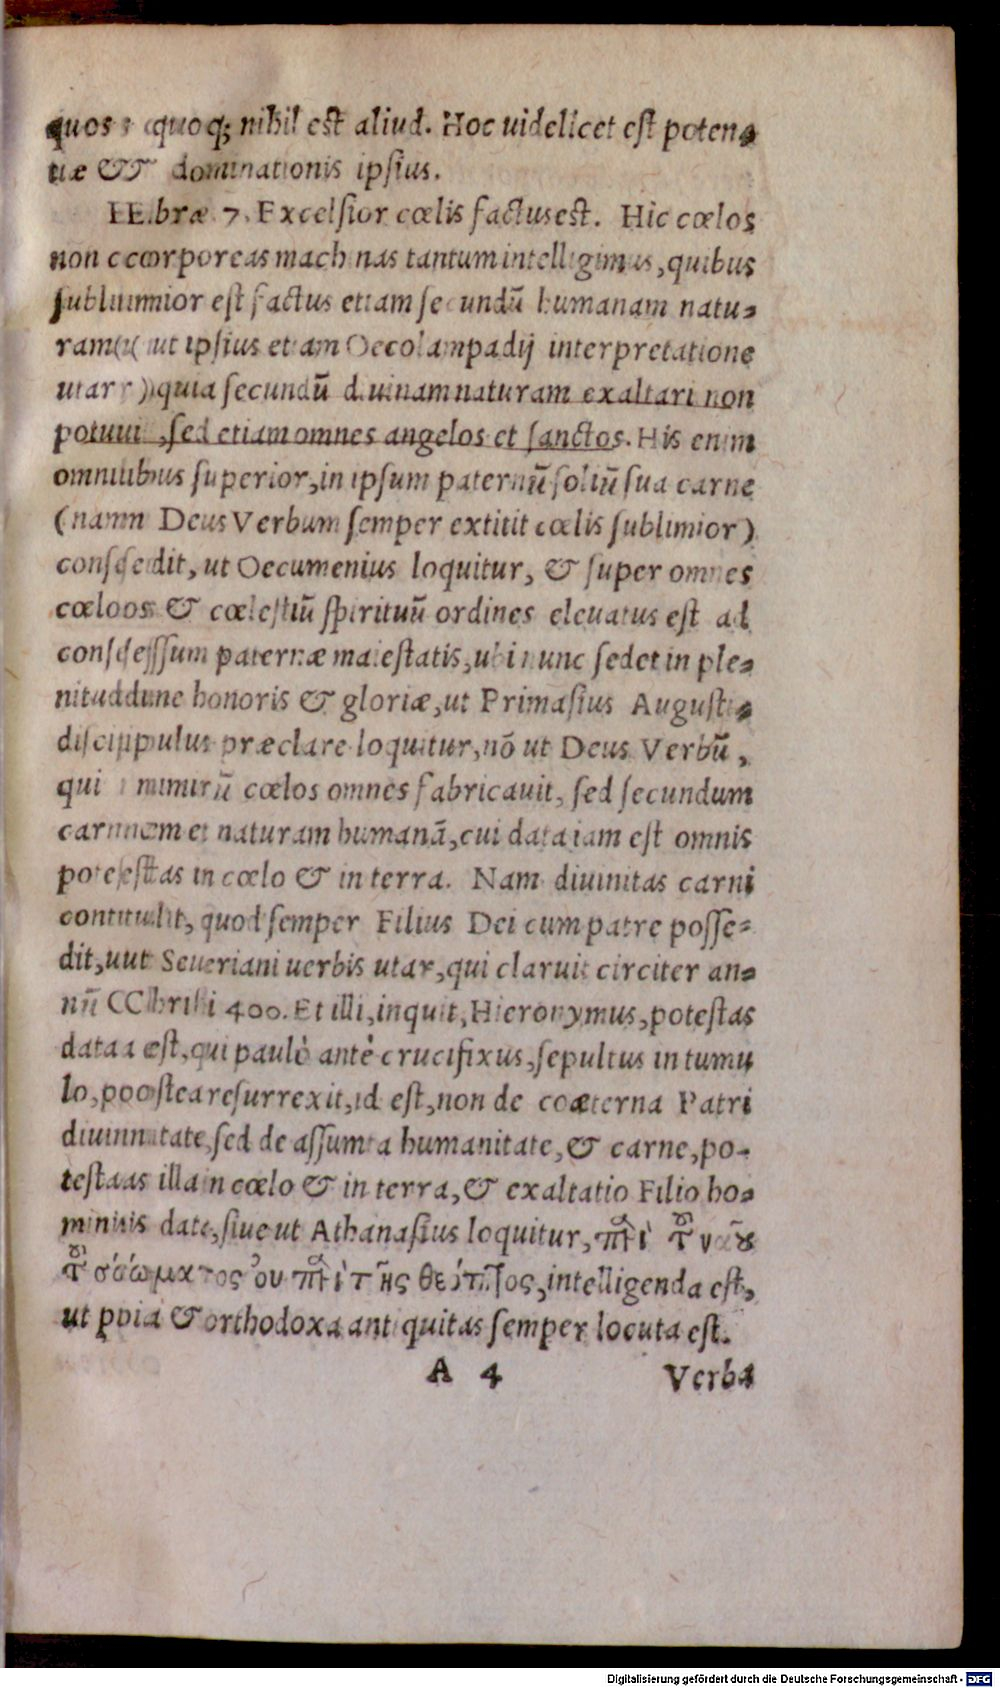 quos quoq; nihil est aliud. Hoc uidelicet est poten-
tiæ & dominationis ipsius.
HEbræ. 7. Excelsior cœlis factus est. Hic cœlos
non corporeas machinas tantum intelligimus, quibus
sublimior est factus etiam secundū humanam natu-
ram (ut ipsius etiam Oecolampadij interpretatione
utar) quia secundū diuinam naturam exaltari non
potuit, sed etiam omnes angelos et sanctos. His enim
omnibus superior, in ipsum paternū soliū sua carne
(nam Deus Verbum semper extitit cœlis sublimior)
consedit, ut Oecumenius loquitur, & super omnes
cœlos & cœlestiū spirituū ordines eleuatus est ad
consessum paternæ maiestatis, ubi nunc sedet in ple-
nitudine honoris & gloriæ, ut Primasius Augusti-
discipulus præclare loquitur, nō ut Deus Verbū,
qui nimirū cœlos omnes fabricauit, sed secundum
carnem et naturam humanā, cui data iam est omnis
potestas in cœlo & in terra. Nam diuinitas carni
contulit, quod semper Filius Dei cum patre posse-
dit, ut Seueriani uerbis utar, qui claruit circiter an-
nū Christi 400. Et illi, inquit, Hieronymus, potestas
data est, qui paulò antè crucifixus, sepultus in tumu
lo, postea resurrexit, id est, non de coæterna Patri
diuinitate, sed de assumta humanitate, & carne, po-
testas illa in cœlo & in terra, & exaltatio Filio ho-
minis data, siue ut Athanasius loquitur, περὶ τοῦ ναοῦ
τοῦ σώματος οὐ περὶ τῆς θεότητος, intelligenda est,
ut pia & orthodoxa antiquitas semper locuta est.
A 4 Verba
Digitalisierung gefördert durch die Deutsche Forschungsgemeinschaft - DFG